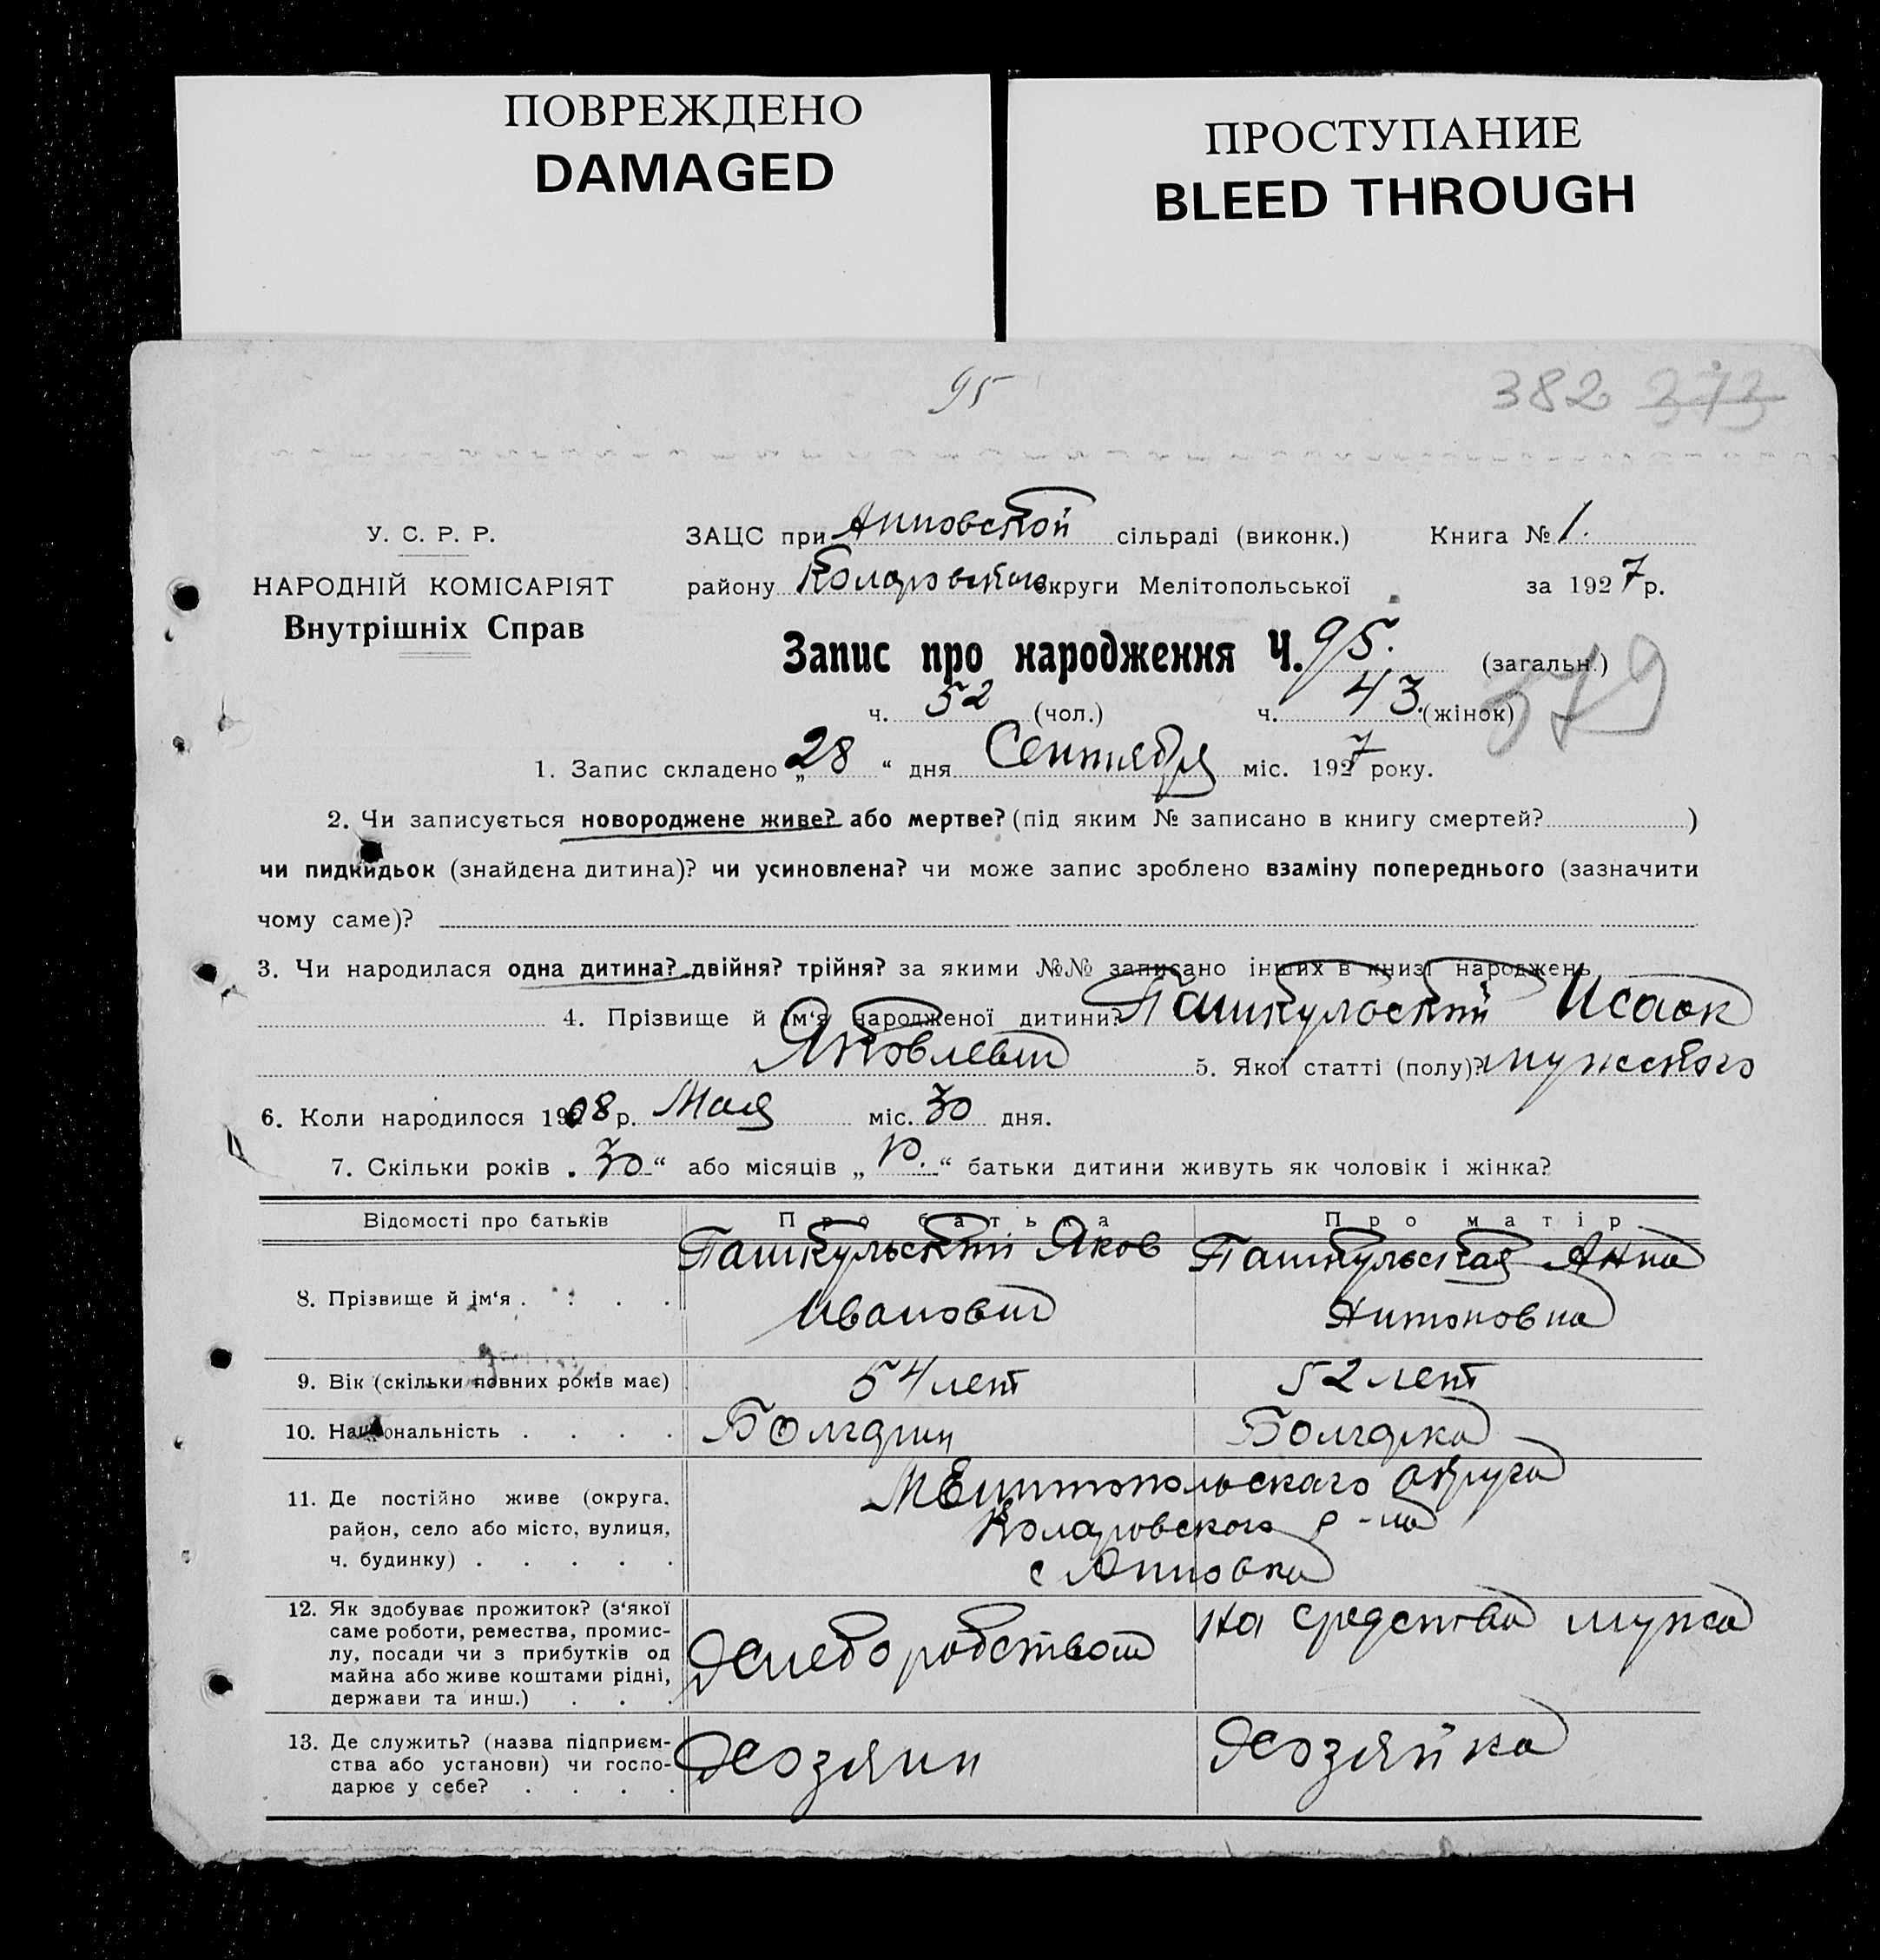 ПОВРЕЖДЕНО
DAMAGED
ПРОСТУПАНИЕ
BLEED THROUGH
95
382 373
У. С. Р. Р.
НАРОДНІЙ КОМІСАРІЯТ
Внутрішніх Справ
ЗАЦС при Анновской сільраді (виконк.) Книга № 1.
району Коларовского округи Мелітопольської за 1927 р.
Запис про народження Ч. 95. (загальн.)
379
ч. 52 (чол.) ч. 43. (жінок)
1. Запис складено „28“ дня Сентября міс. 1927 року.
2. Чи записується новороджене живе? або мертве? (під яким № записано в книгу смертей? )
чи пидкидьок (знайдена дитина)? чи усиновлена? чи може запис зроблено взаміну попереднього (зазначити
чому саме)?
3. Чи народилася одна дитина? двійня? трійня? за якими №№ записано інших в книзі народжень
4. Прізвище й ім‘я народженої дитини? Пашкульский Исаак
Яковлевич 5. Якої статті (полу)? мужского
6. Коли народилося 1908 р. Мая міс. 30 дня.
7. Скільки років „30“ або місяців „10.“ батьки дитини живуть як чоловік і жінка?
Відомості про батьків Про батька Про матір
8. Прізвище й ім‘я . . . .
Пашкульский Яков
Иванович
Пашкульская Анна
Антоновна
9. Вік (скільки повних років має) 54 лет 52 лет
10. Національність . . . . Болгарин Болгарка
11. Де постійно живе (округа,
район, село або місто, вулиця,
ч. будинку) . . . . .
Мелитопольскаго округа
Коларовского р-на
с Анновка
12. Як здобуває прожиток? (з‘якої
саме роботи, ремества, промис-
лу, посади чи з прибутків од
майна або живе коштами рідні,
держави та инш.) . . .
Хлеборобством
на средства мужа
13. Де служить? (назва підприєм-
ства або установи) чи госпо-
дарює у себе? . . . .
Хозяин
Хозяйка